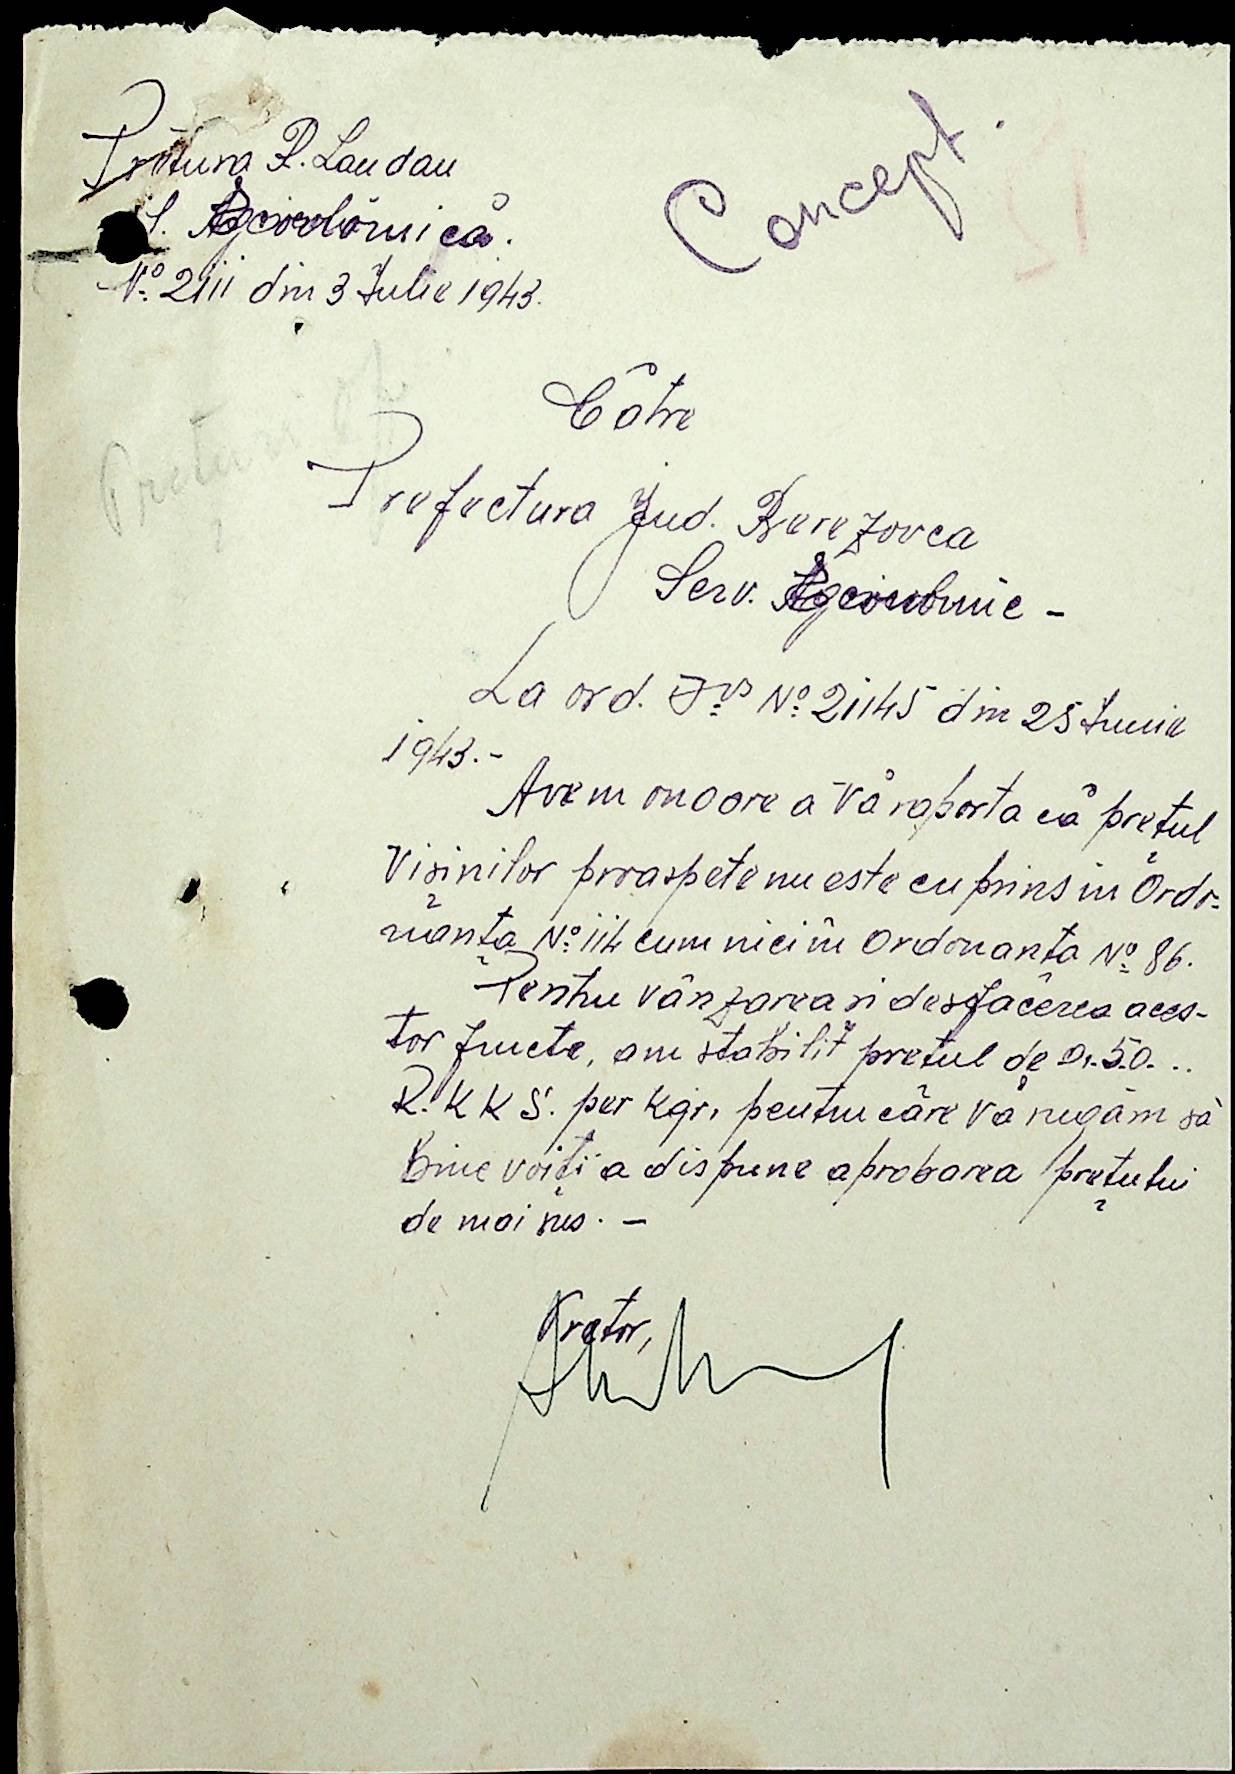 Pretura R. Landau
S. Agronomică.
Nº 2111 din 3 Iulie 1943.
Concept.
Preturi of
Către
Prefectura Jud. Berezovca
Serv. Agronomic -
La ord. Dvs Nº 21145 din 25 Iunie
1943.-
Avem onoare a Vă raporta că prețul
Visinilor proaspete nu este cuprins in Ordo-
nanța Nº 114 cum nici in Ordonanta Nº 86.
Pentru vânzarea si desfacerea aces-
tor fructe, am stabilit pretul de 0.50...
R.K K S. per Kgr. pentru care Vă rugăm să
bine voiți a dispune aprobarea prețului
de mai sus. -
Pretor,